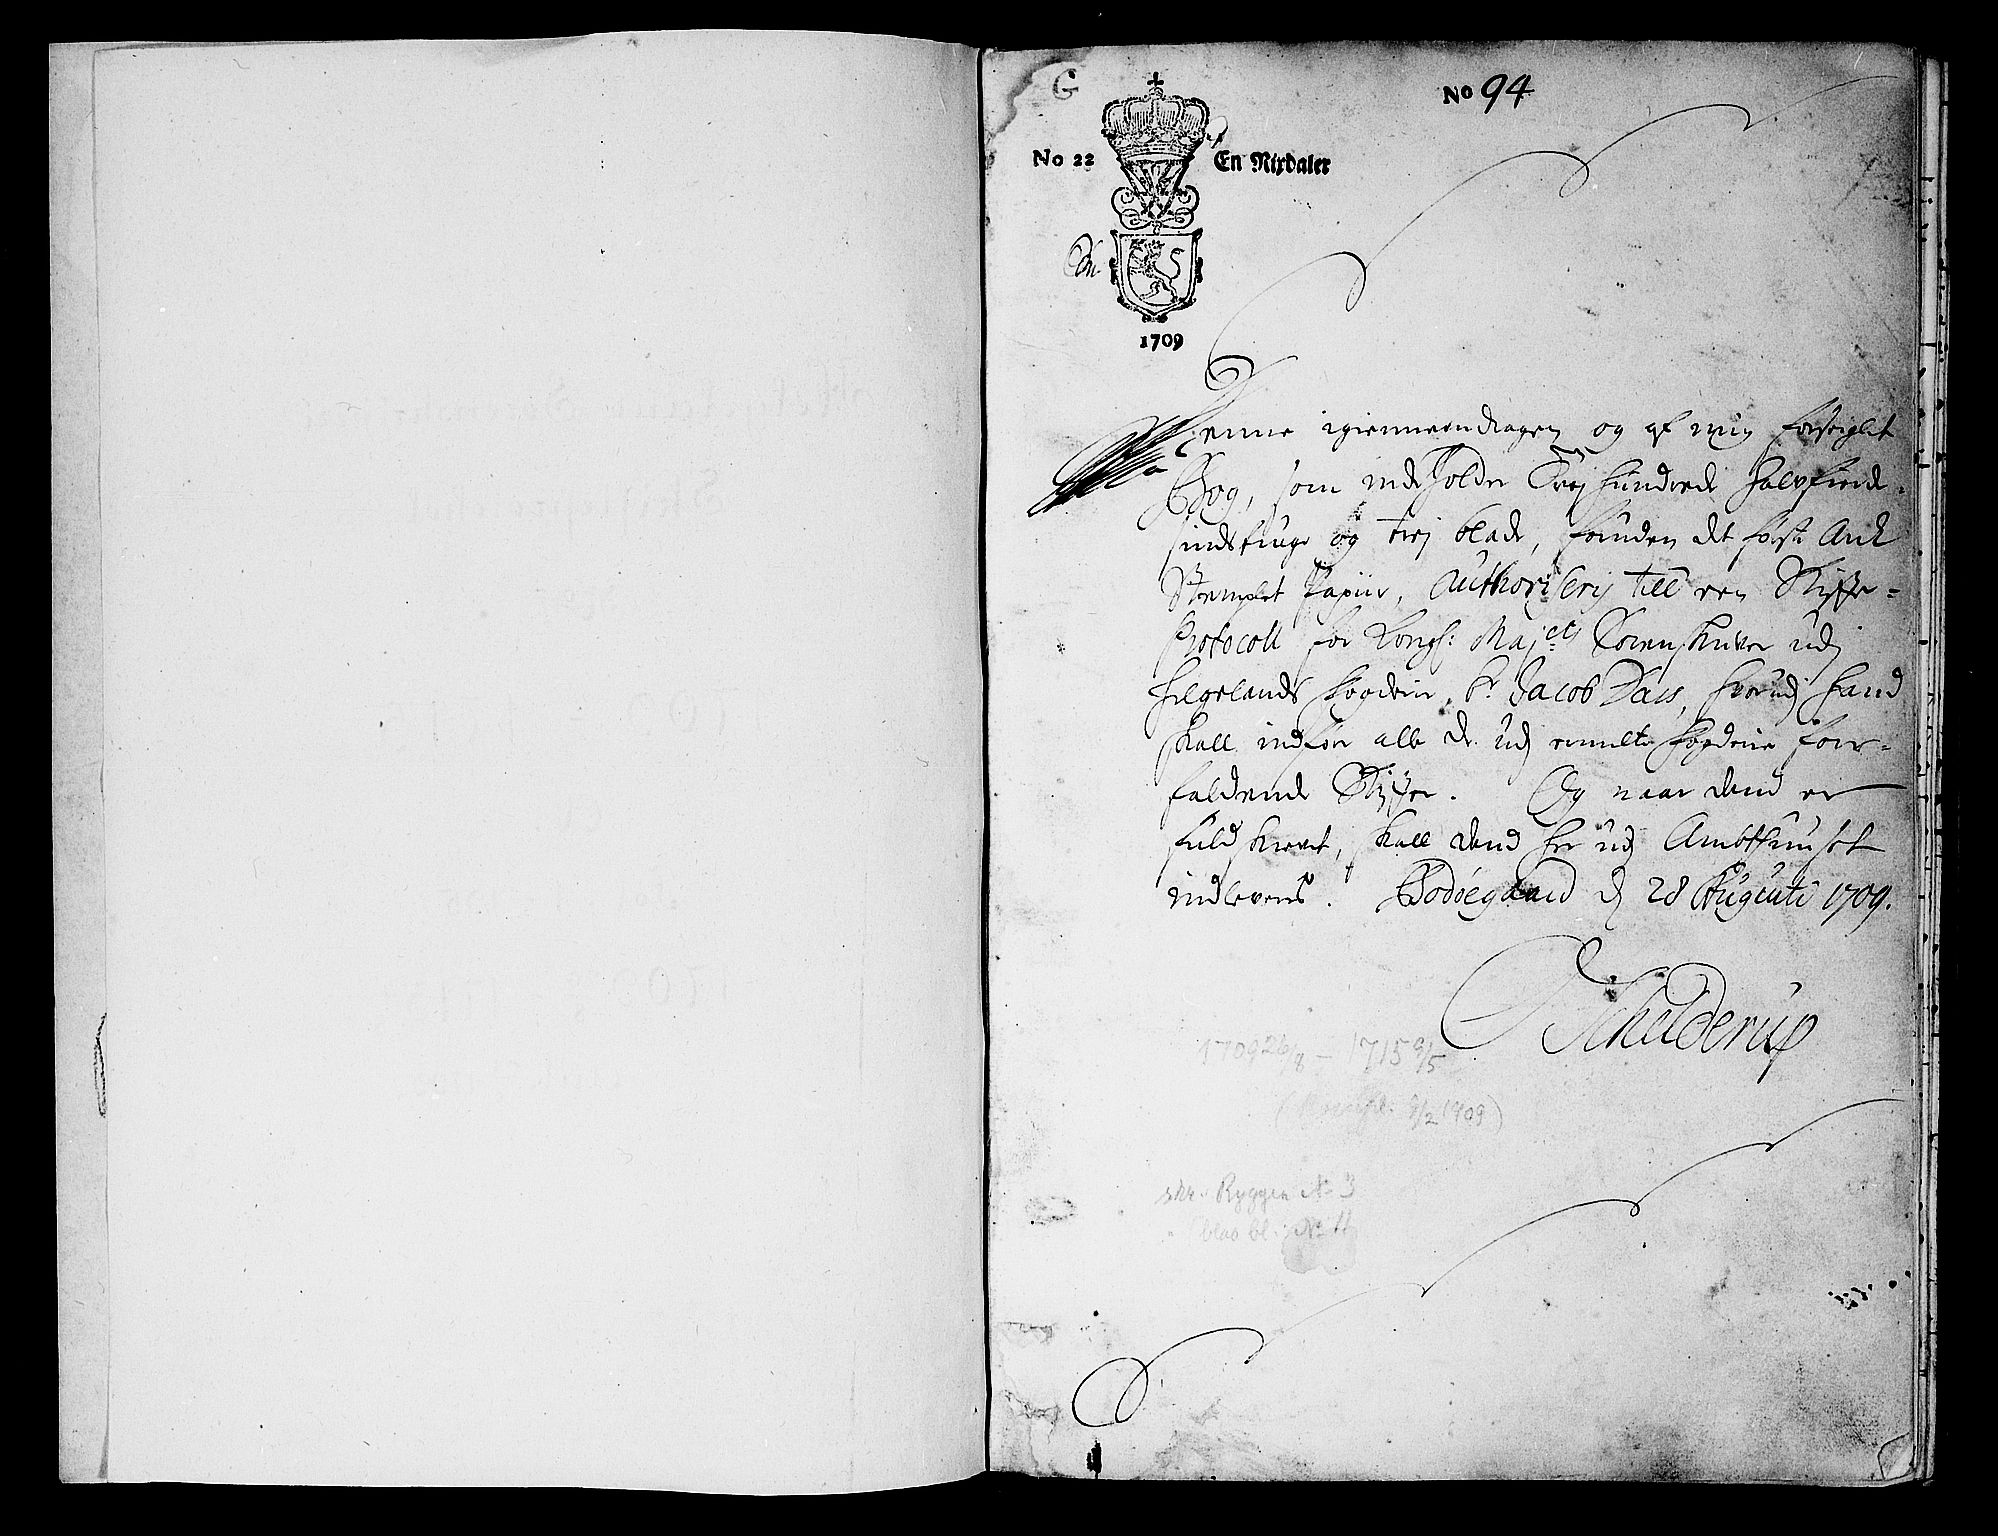 G
No 94
No 22 En Rixdaler
1709
Denne igiennemdragen og af mig forseiglet
Bog, som inde holder Trej hundrede halvfierde-
sindstiuge og trej blade, foruden det første Ark
Stemplet Papiir, Authoriseris till een Skifte-
Protocoll for Kongl: Maj:ets Sorenskriver udj
Helgelands fogderie, Sr. Jacob Dass, hvorudj hand
skall indføre alle de udj emelte fogderie fore-
faldende Skifter. Og naar dend er
fuldskrevet, skall dend her udj Ambthuuset
indleveris. Bodøegaard d 28 Augusti 1709.
Schelderup
1709 26/8 – 1715 9/5
( 9/2 1709)
skr. Ryggen № 3
" blaa bl. № 11